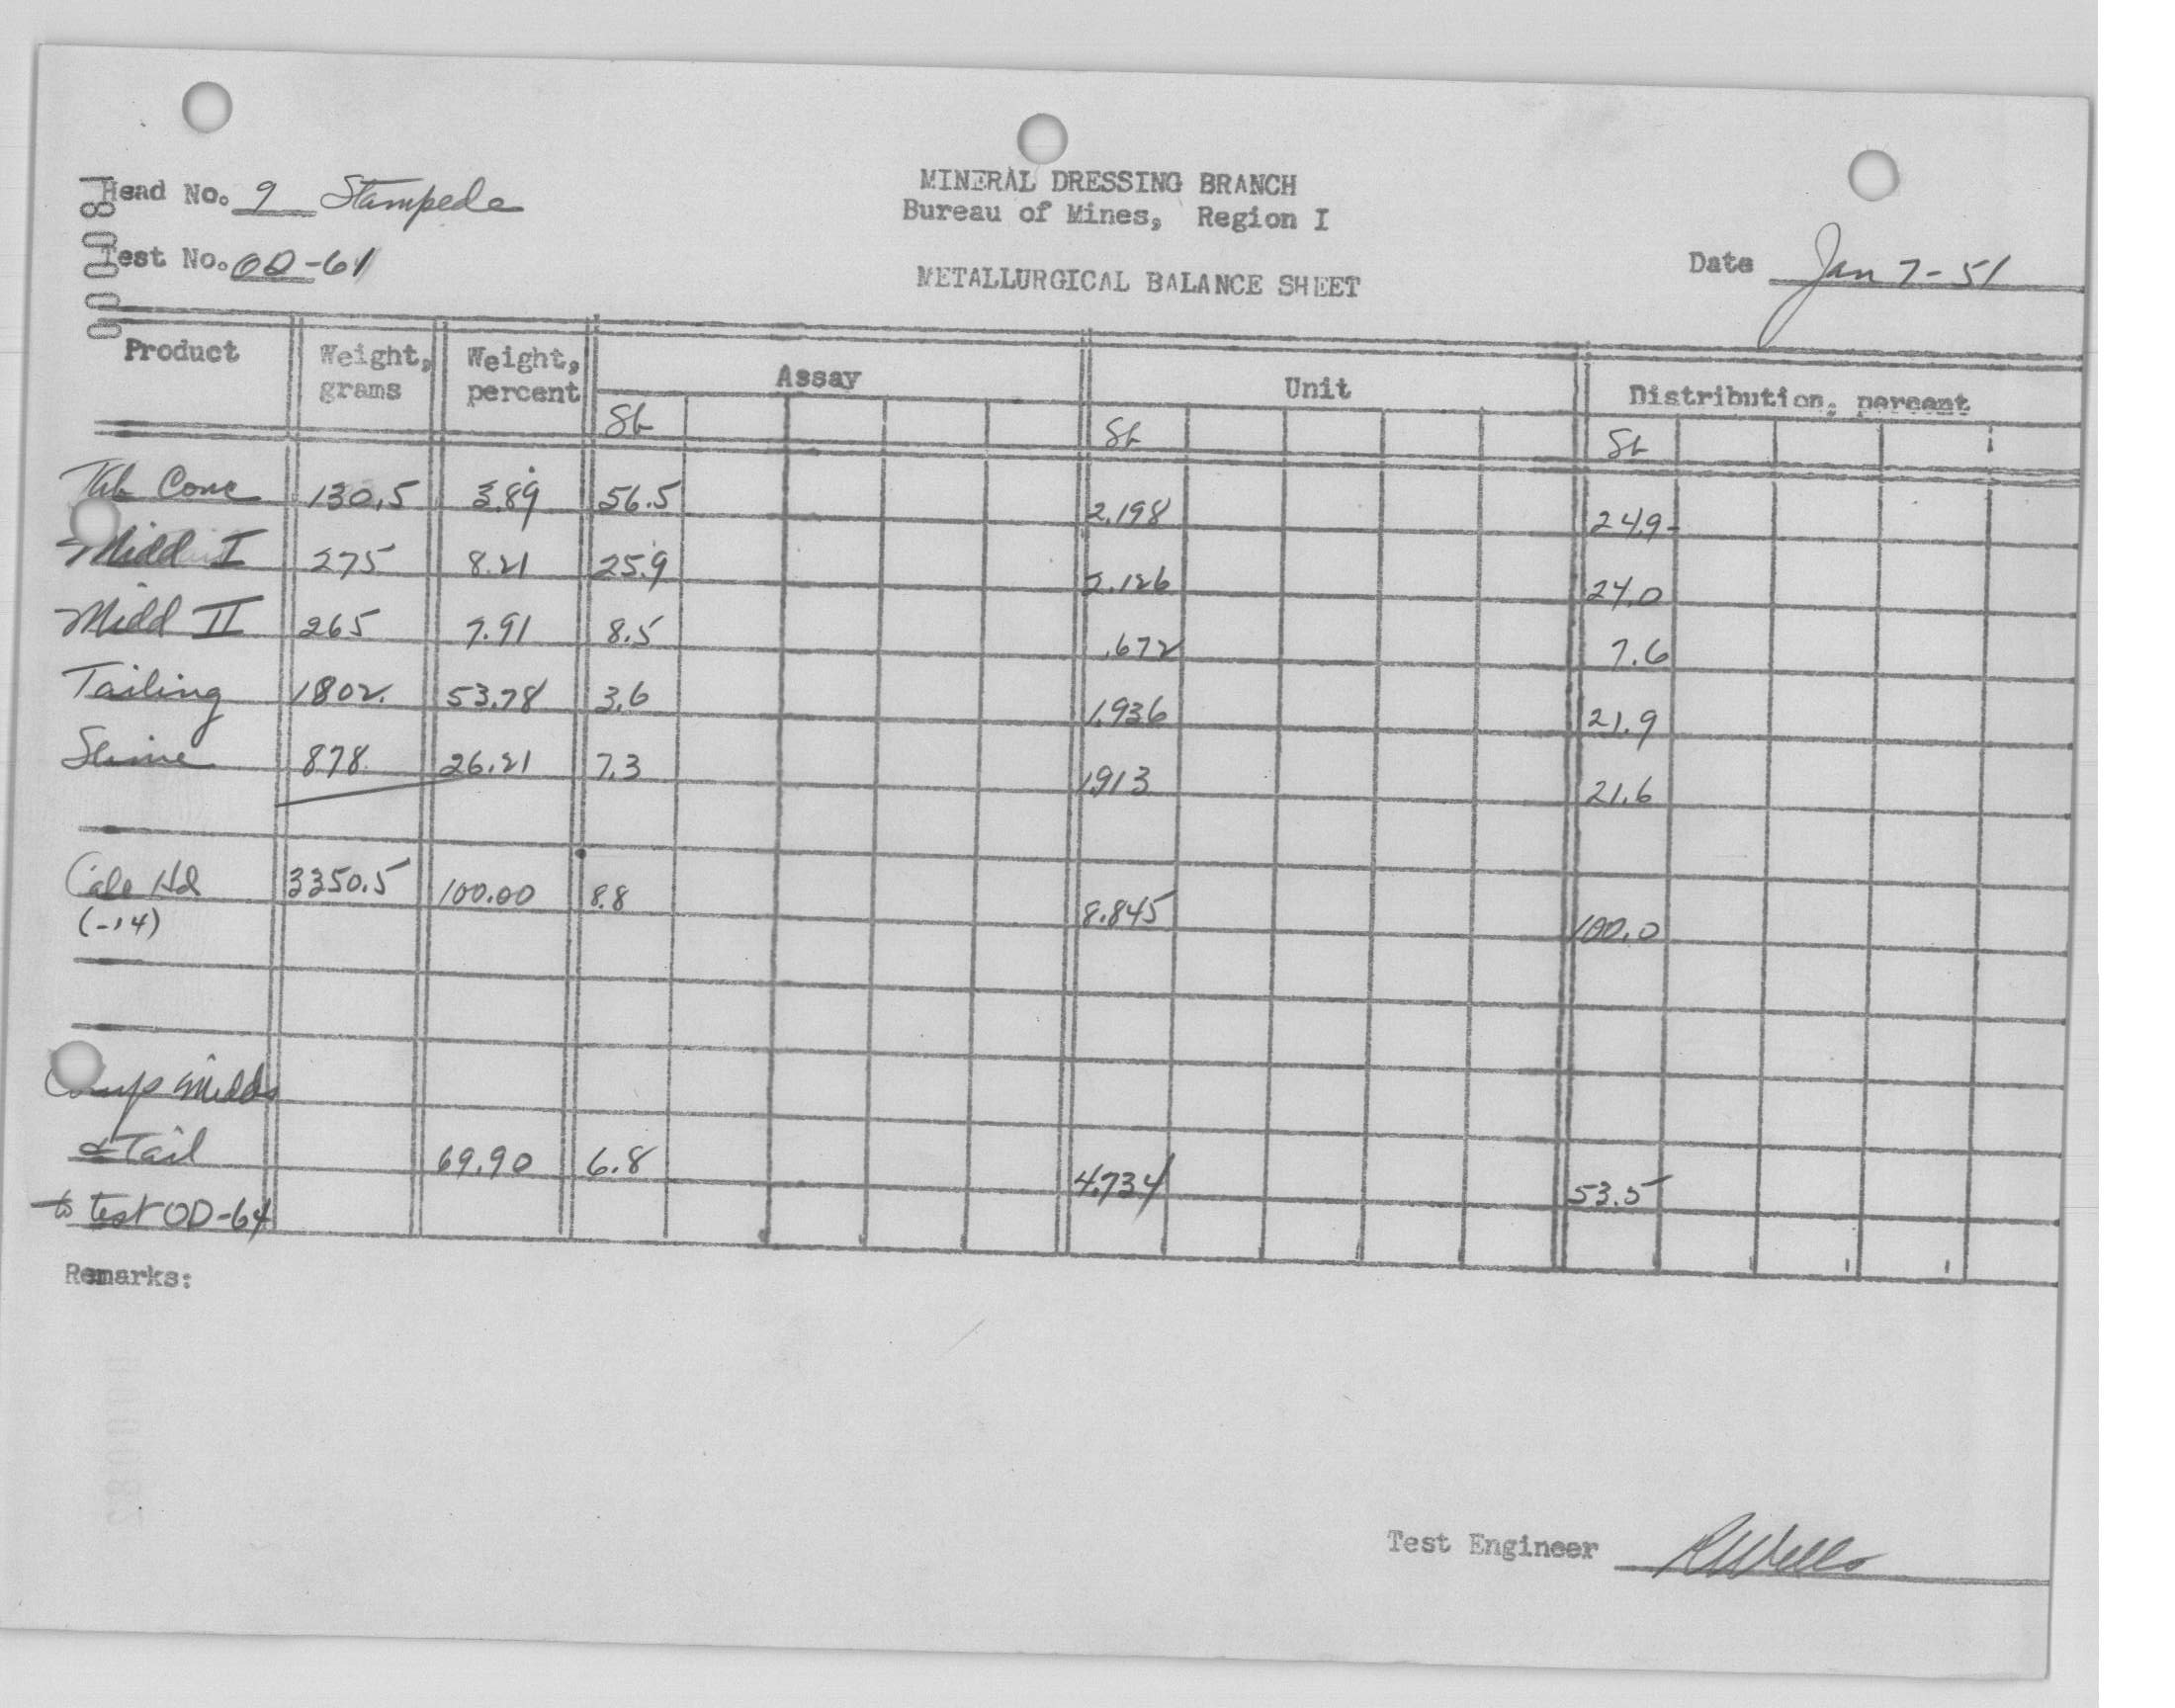 MINERAL DRESSING BRANCH
Bureau of Mines, Region I
METALLURGICAL BALANCE SHEET
Head No. 9 Stampede
Test No. OD-61
Date Jan 7-51
000081
Product Weight, grams Weight, percent Assay Unit Distribution, percent
Sb Sb Sb
Tbl Conc 130.5 3.89 56.5 2.198 24.9-
Midd I 275 8.21 25.9 2.126 24.0
Midd II 265 7.91 8.5 .672 7.6
Tailing 1802. 53.78 3.6 1.936 21.9
Slime 878. 26.21 7.3 1.913 21.6
Calc Hd 3350.5 100.00 8.8 8.845 100.0
(-14)
Comp Midds
& Tail 69.90 6.8 4.734 53.5
to test OD-64
Remarks:
Test Engineer RWells